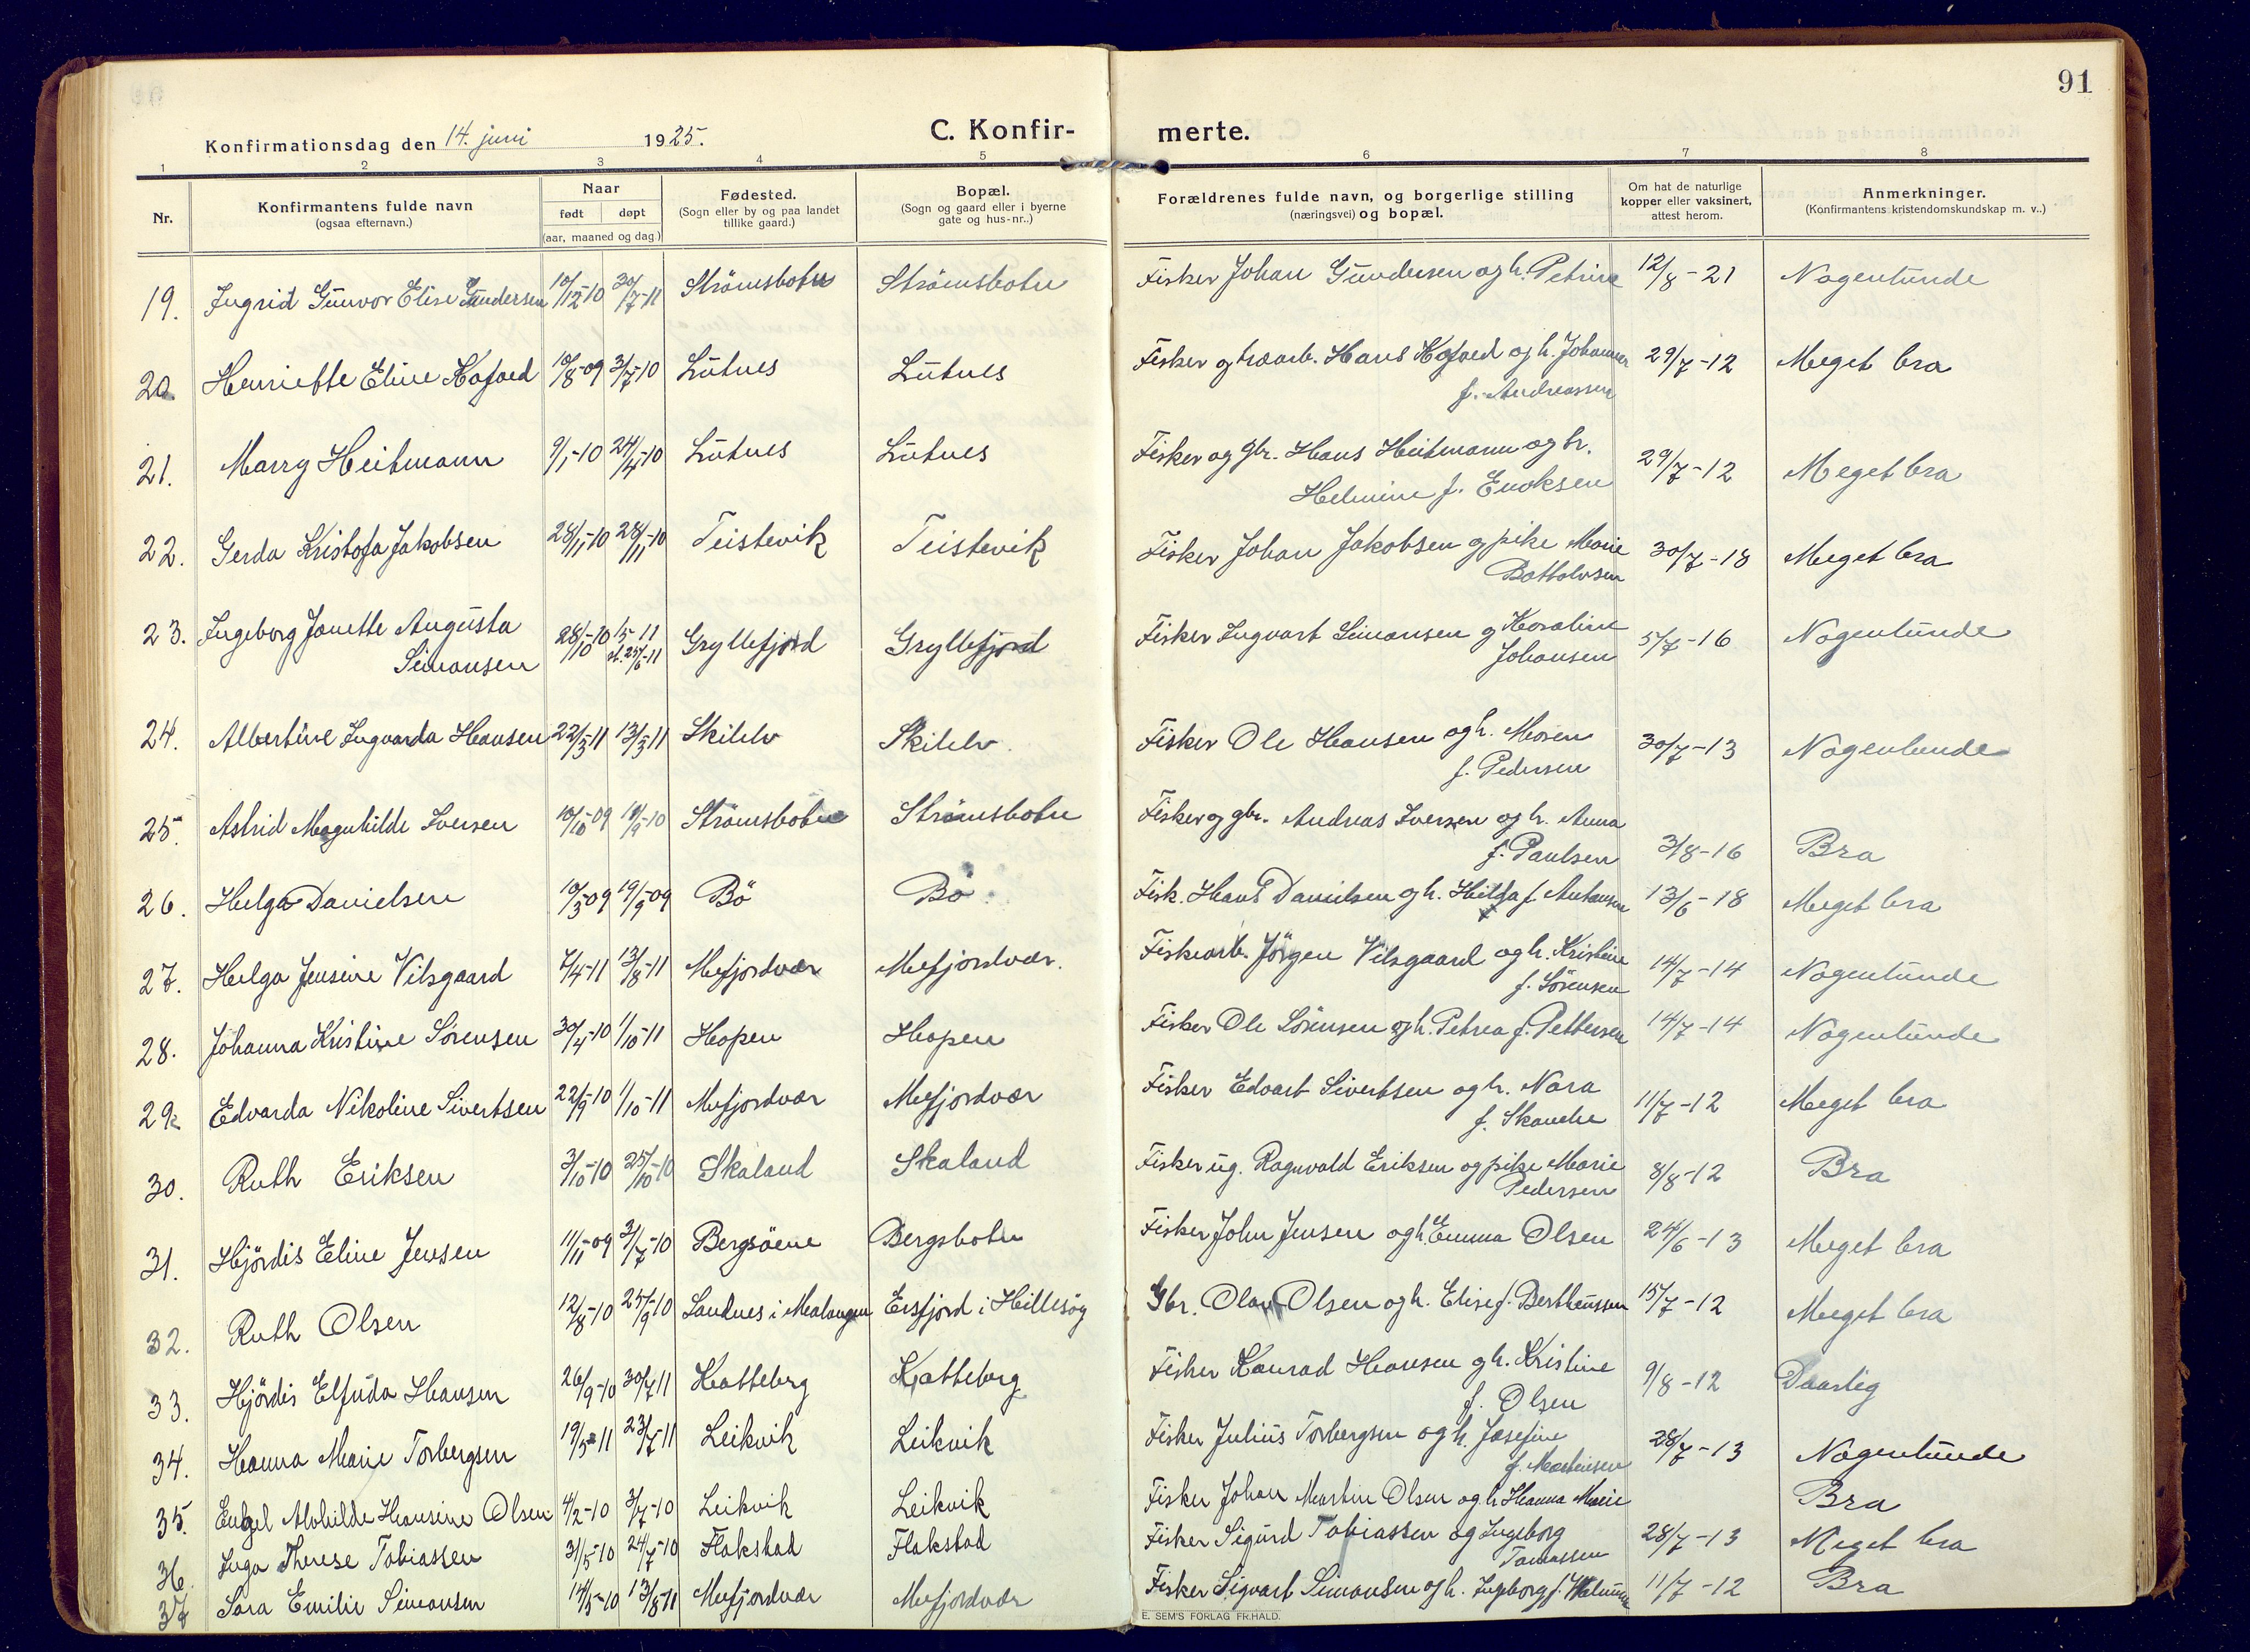 91
Konfirmationsdag den 14. juni 1925.
C. Konfirmerte.
1 2 3 4 5 6 7 8
Nr. | Konfirmantens fulde navn (ogsaa efternavn.) | Naar født | døpt (aar, maaned og dag.) | Fødested. (Sogn eller by og paa landet tillike gaard.) | Bopæl. (Sogn og gaard eller i byerne gate og hus-nr..) | Forældrenes fulde navn, og borgerlige stilling (næringsvei) og bopæl. | Om hat de naturlige kopper eller vaksinert, attest herom. | Anmerkninger. (Konfirmantens kristendomskundskap m. v..)
19. Ingrid Gunvor Elise Gundersen 10/12-10 30/7-11 Strömsbotn Strömsbotn Fisker Johan Gundersen og h. Petrine 12/8-21 Nogenlunde
20. Henriette Eline Kofoed 10/8-09 3/7-10 Lutnes Lutnes Fisker og træarb. Hans Kofoed og h. Johanna
f. Andreassen 29/7-12 Meget bra
21. Marry Heitmann 9/1-10 24/4-10 Lutnes Lutnes Fisker og gbr. Hans Heitmann og h.
Helmine f. Enoksen 29/7-12 Meget bra
22. Gerda Kristofa Jakobsen 28/1-10 28/11-10 Teistevik Teistevik Fisker Johan Jakobsen og pike Marie
Bottolvsen 30/7-18 Meget bra
23. Ingeborg Janette Augusta
Simonsen 28/10-10 Gryllefjord Gryllefjord Fisker Ingvart Simonsen og Koraline
Johansen 5/7-16 Nogenlunde
24. Albertine Ingvarda Hansen 22/3-11 13/5-11 Skilelv Skilelv. Fisker Ole Hansen og h. Maren
f. Pedersen 30/7-13 Nogenlunde
25. Astrid Magnhilde Iversen 10/10-09 18/9-10 Strömsbotn Strömsbotn Fisker og gbr. Andreas Iversen og h. Anna
f. Paulsen 3/8-16 Bra
26. Helga Danielsen 10/5-09 19/9-09 Bö Bö Fisk. Hans Danielsen og h. Hilda f. Antonsen 13/6-18 Meget bra
27. Helga Jensine Vilsgaard 7/4-11 13/8-11 Mefjordvær Mefjordvær. Fiskearb. Jörgen Vilsgaard og h. Kristine
f. Sörensen 14/7-14 Nogenlunde
28. Johanna Kristine Sörensen 30/4-10 1/10-11 Hopen Hopen Fisker Ole Sörensen og h. Petrea f. Pettersen 14/7-14 Nogenlunde
29. Edvarda Nikoline Sivertsen 22/9-10 1/10-11 Mefjordvær Mefjordvær Fisker Edvart Sivertsen og h. Nora
f. Skanche 11/7-12 Meget bra
30. Ruth Eriksen 3/10-10 25/10-10 Skaland Skaland Fisker ug. Ragnvald Eriksen og pike Marie
Pedersen 8/8-12 Bra
31. Hjördis Eline Jensen 11/11-09 3/7-10 Bergsöene Bergsbotn Fisker John Jensen og h. Emma Olsen 24/6-13 Meget bra
32. Ruth Olsen 12/8-10 25/9-10 Sandnes i Malangen Ersfjord i Hillesöy Gbr. Olav Olsen og h. Elise f. Bertheussen 15/7-12 Meget bra
33. Hjördis Elfrida Hansen 26/9-10 30/7-11 Katteberg Katteberg Fisker Konrad Hansen og h. Kristine
f. Olsen 9/8-12 Daarlig
34. Hanna Marie Torbergsen 19/3-11 23/7-11 Leikvik Leikvik Fisker Julius Torbergsen og h. Josefine
f. Martinsen 28/7-13 Nogenlunde
35. Engel Alvhilde Hansine Olsen 4/2-10 3/7-10 Leikvik Leikvik Fisker Johan Martin Olsen og h. Hanna Marie Bra
36. Inga Therese Tobiassen 31/5-10 24/7-10 Flakstad Flakstad Fisker Sigurd Tobiassen og Ingeborg
Tomassen 28/7-13 Meget bra
37 Sara Emilie Simonsen 14/5-10 13/8-11 Mefjordvær Mefjordvær Fisker Sigvart Simonsen og h. Ingeborg f. 11/7-12 Bra
E. SEM'S FORLAG FR.HALD.